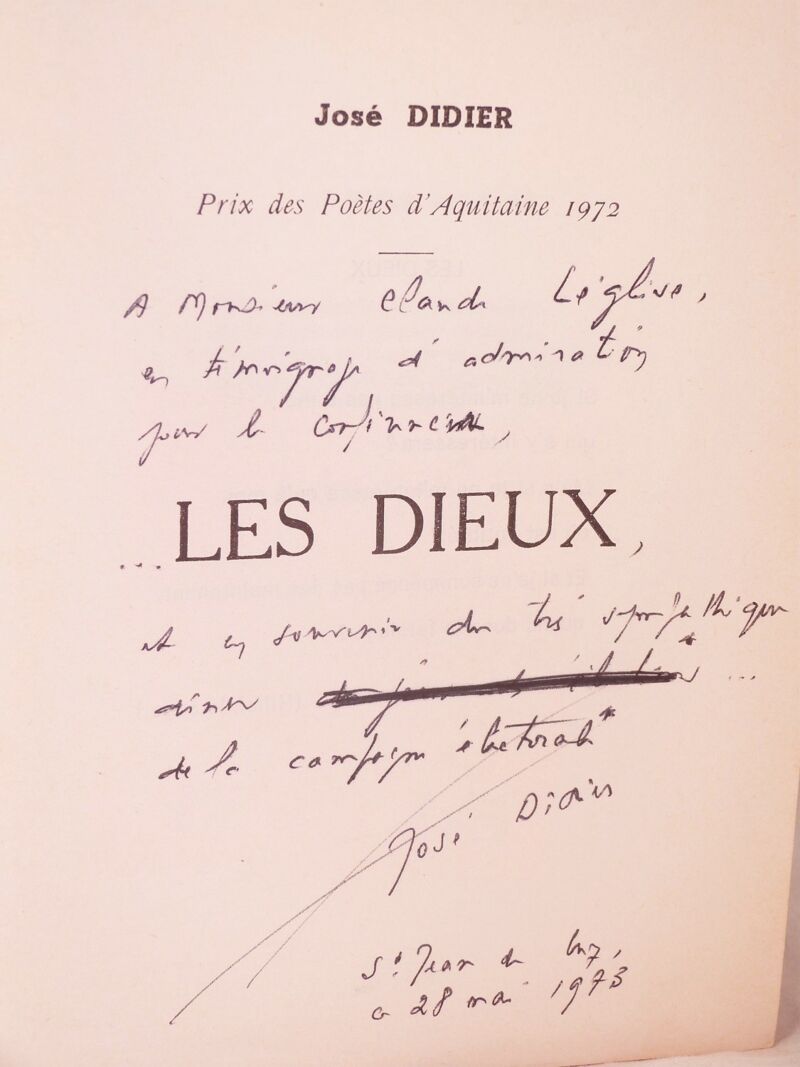 José DIDIER
Prix des Poètes d'Aquitaine 1972
A Monsieur Claude Léglise,
en témoignage d'admiration
pour le
...LES DIEUX,
et en souvenir du très sympathique
dîner * ...
de la campagne électorale*
José Didier
St Jean de Luz,
le 28 mai 1973